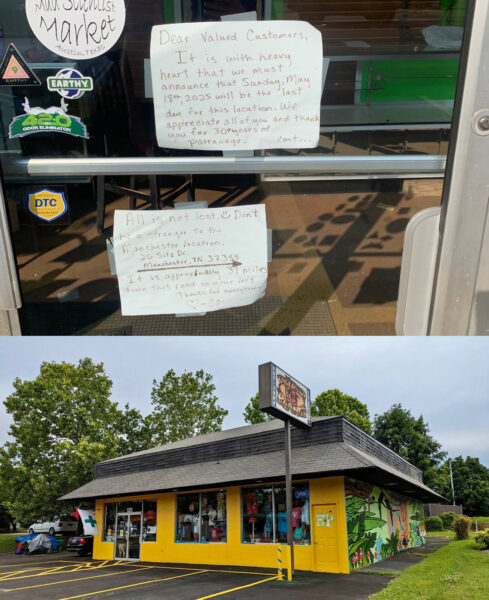 Mad Scientist
Market
Austin, Texas
EARTHY
EARTHY
420
ODOR ELIMINATOR
DTC
Dear Valued Customers,
It is with heavy
heart that we must
announce that Sunday, May
18th, 2025 will be the last
day for this location. We
appreciate all of you and thank
you for 30+ years of
patranage. cont...
All is not lost. Don't
be a stranger to the
Manchester location.
26 Sitz Dr.
Manchester, TN 37355
It is approximately 31 miles
down this road on your left
Thanks for everything